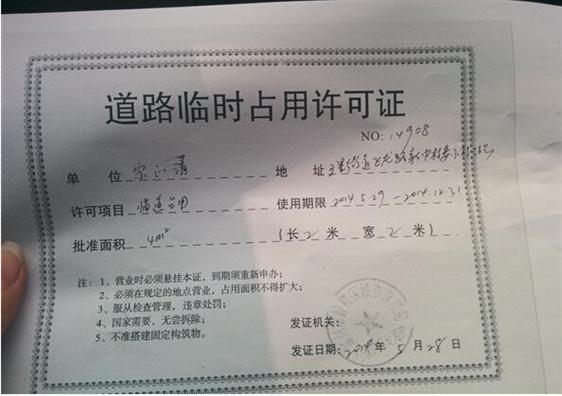 道路临时占用许可证
NO: 14908
单 位 地 址
许可项目 临道占用 使用期限 2014.5.29-2014.12.31
批准面积 4m² (长 2 米 宽 2 米)
注:1、营业时必须悬挂本证,到期须重新申办;
2、必须在规定的地点营业,占用面积不得扩大;
3、服从检查管理,违章处罚;
4、国家需要,无偿拆除;
5、不准搭建固定构筑物。
发证机关:
发证日期:2014年 5 月 28 日